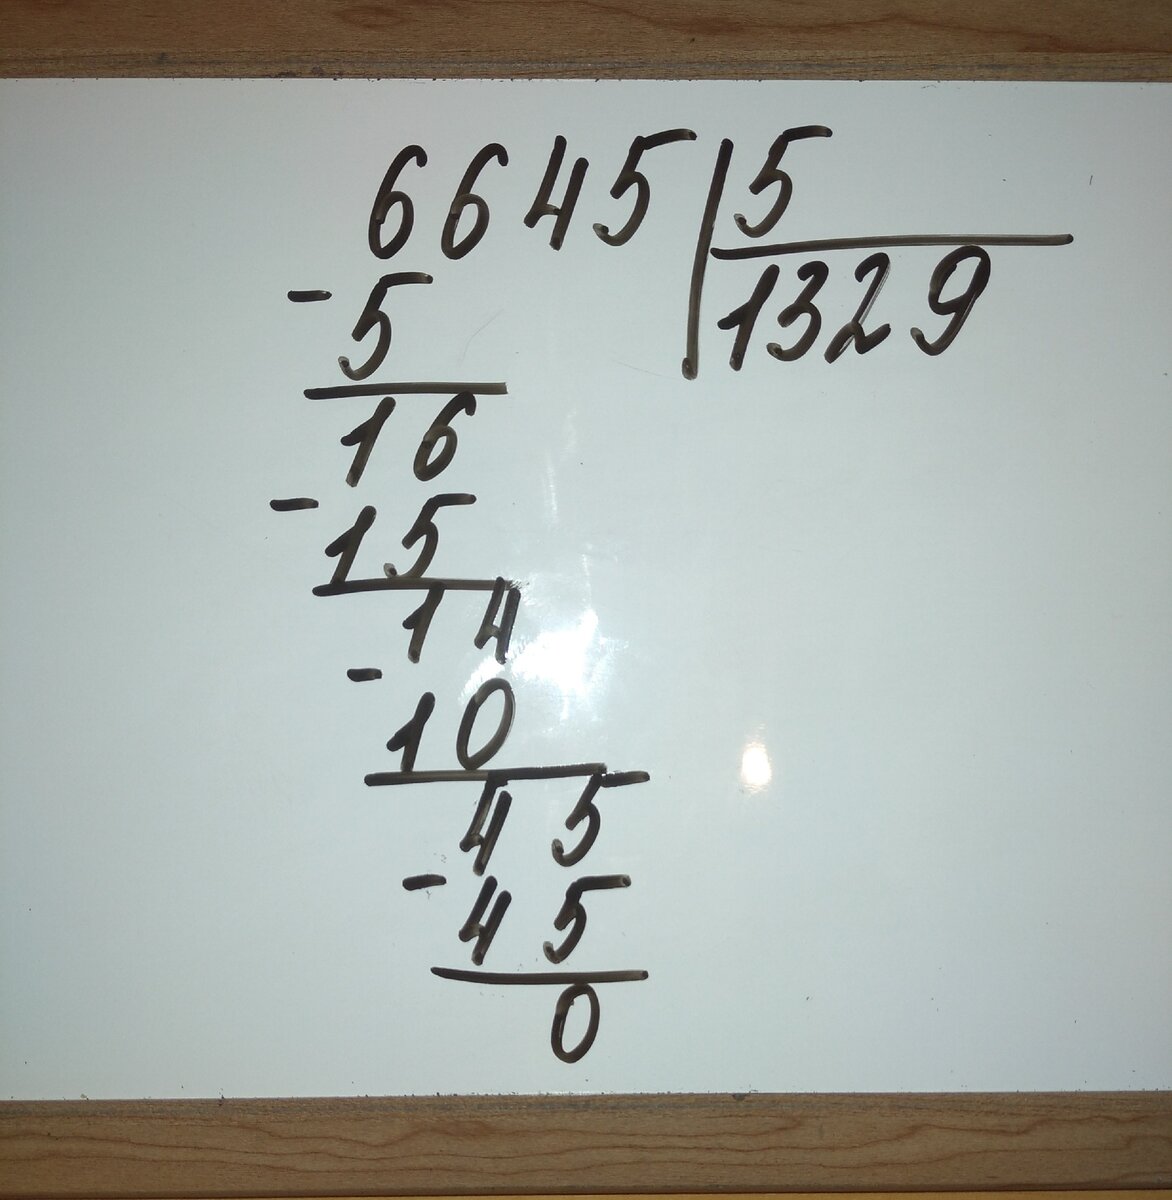 6645 5
- 5 1329
16
- 15
14
- 10
45
- 45
0